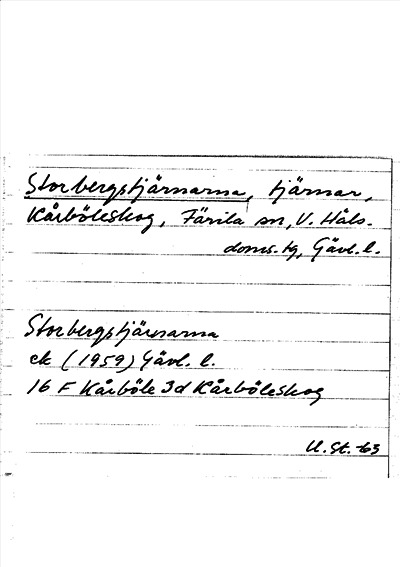 Storbergstjärnarna, tjärnar,
Kårböleskog, Färila sn, V. Häls.
doms. tg, Gävl. l.
Storbergstjärnarna
ek (1959) Gävl. l.
16 F Kårböle 3d Kårböleskog
U. St. 63